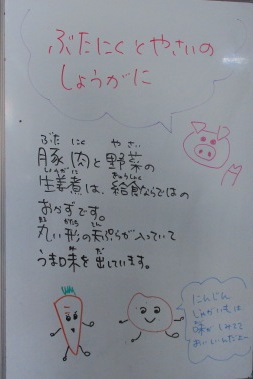 ぶたにくとやさいの
しょうがに
ぶた にく やさい
豚肉と野菜の
しょうがに きゅうしょく
生姜煮は、給食ならではの
おかずです。
まる かたち てん
丸い形の天ぷらが入っていて
み だ
うま味を出しています。
にんじん
じゃがいもは
味がしみてて
おいしいんだよー